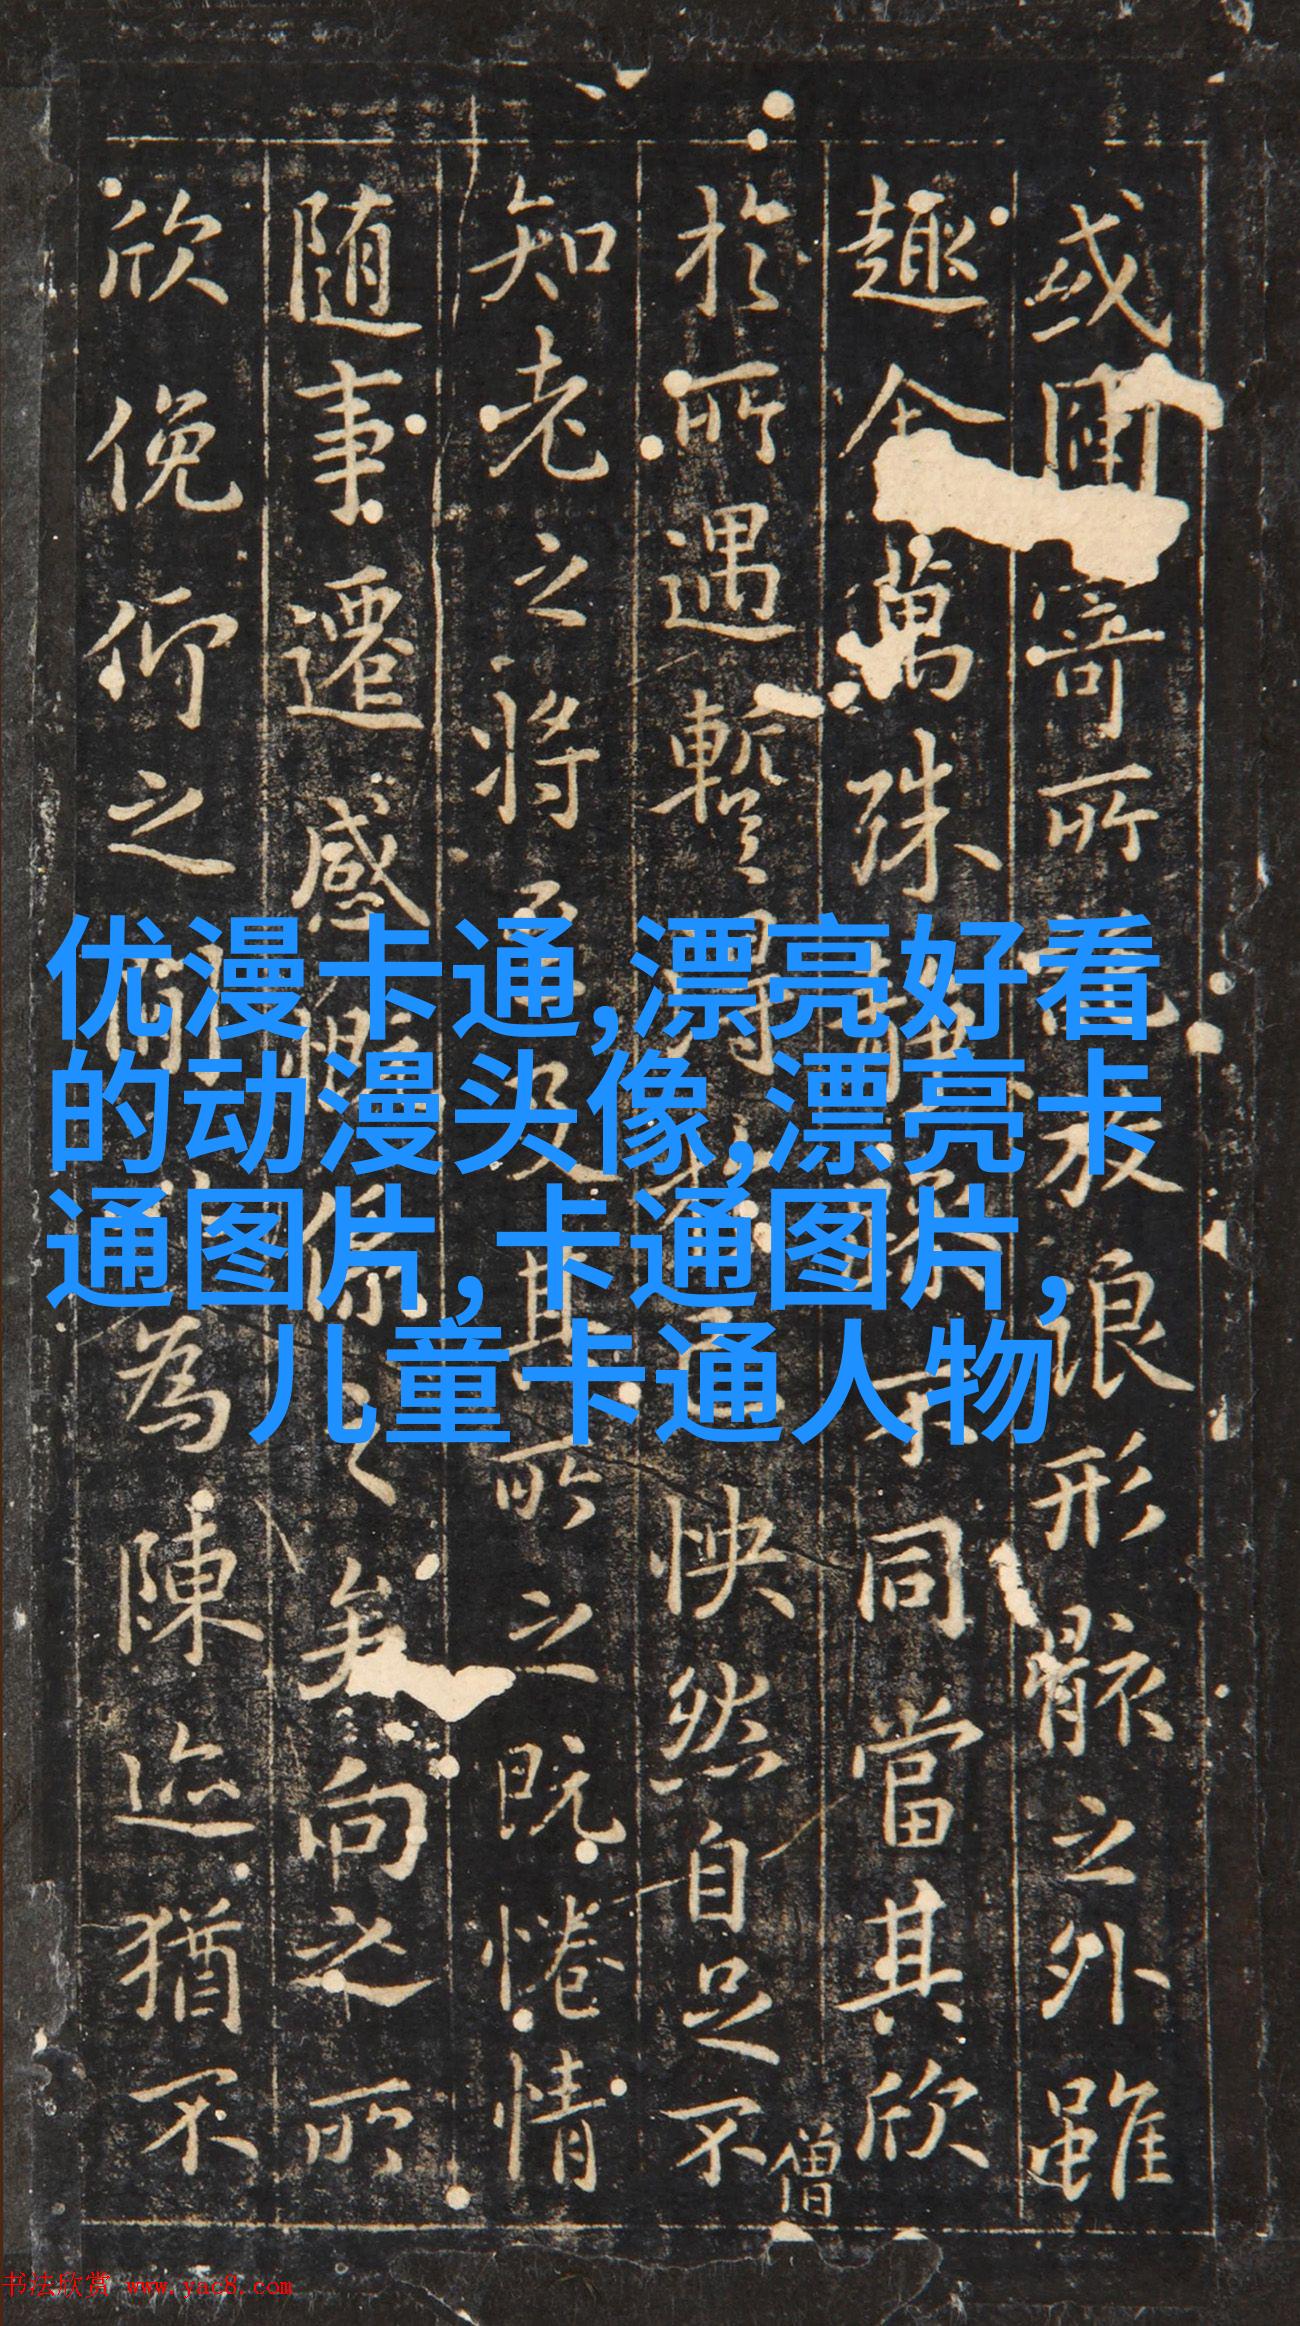 或因寄所託放浪形骸之外雖
趣舍萬殊靜躁不同當其欣
於所遇暫得於己怏然自足不
僧
知老之將至及其所之既惓情
随事遷感慨係之矣向之所
欣俛仰之間以為陳迹猶不
优漫卡通,漂亮好看
的动漫头像,漂亮卡
通图片, 卡通图片,
儿童卡通人物
书法欣赏 www.yac8.com